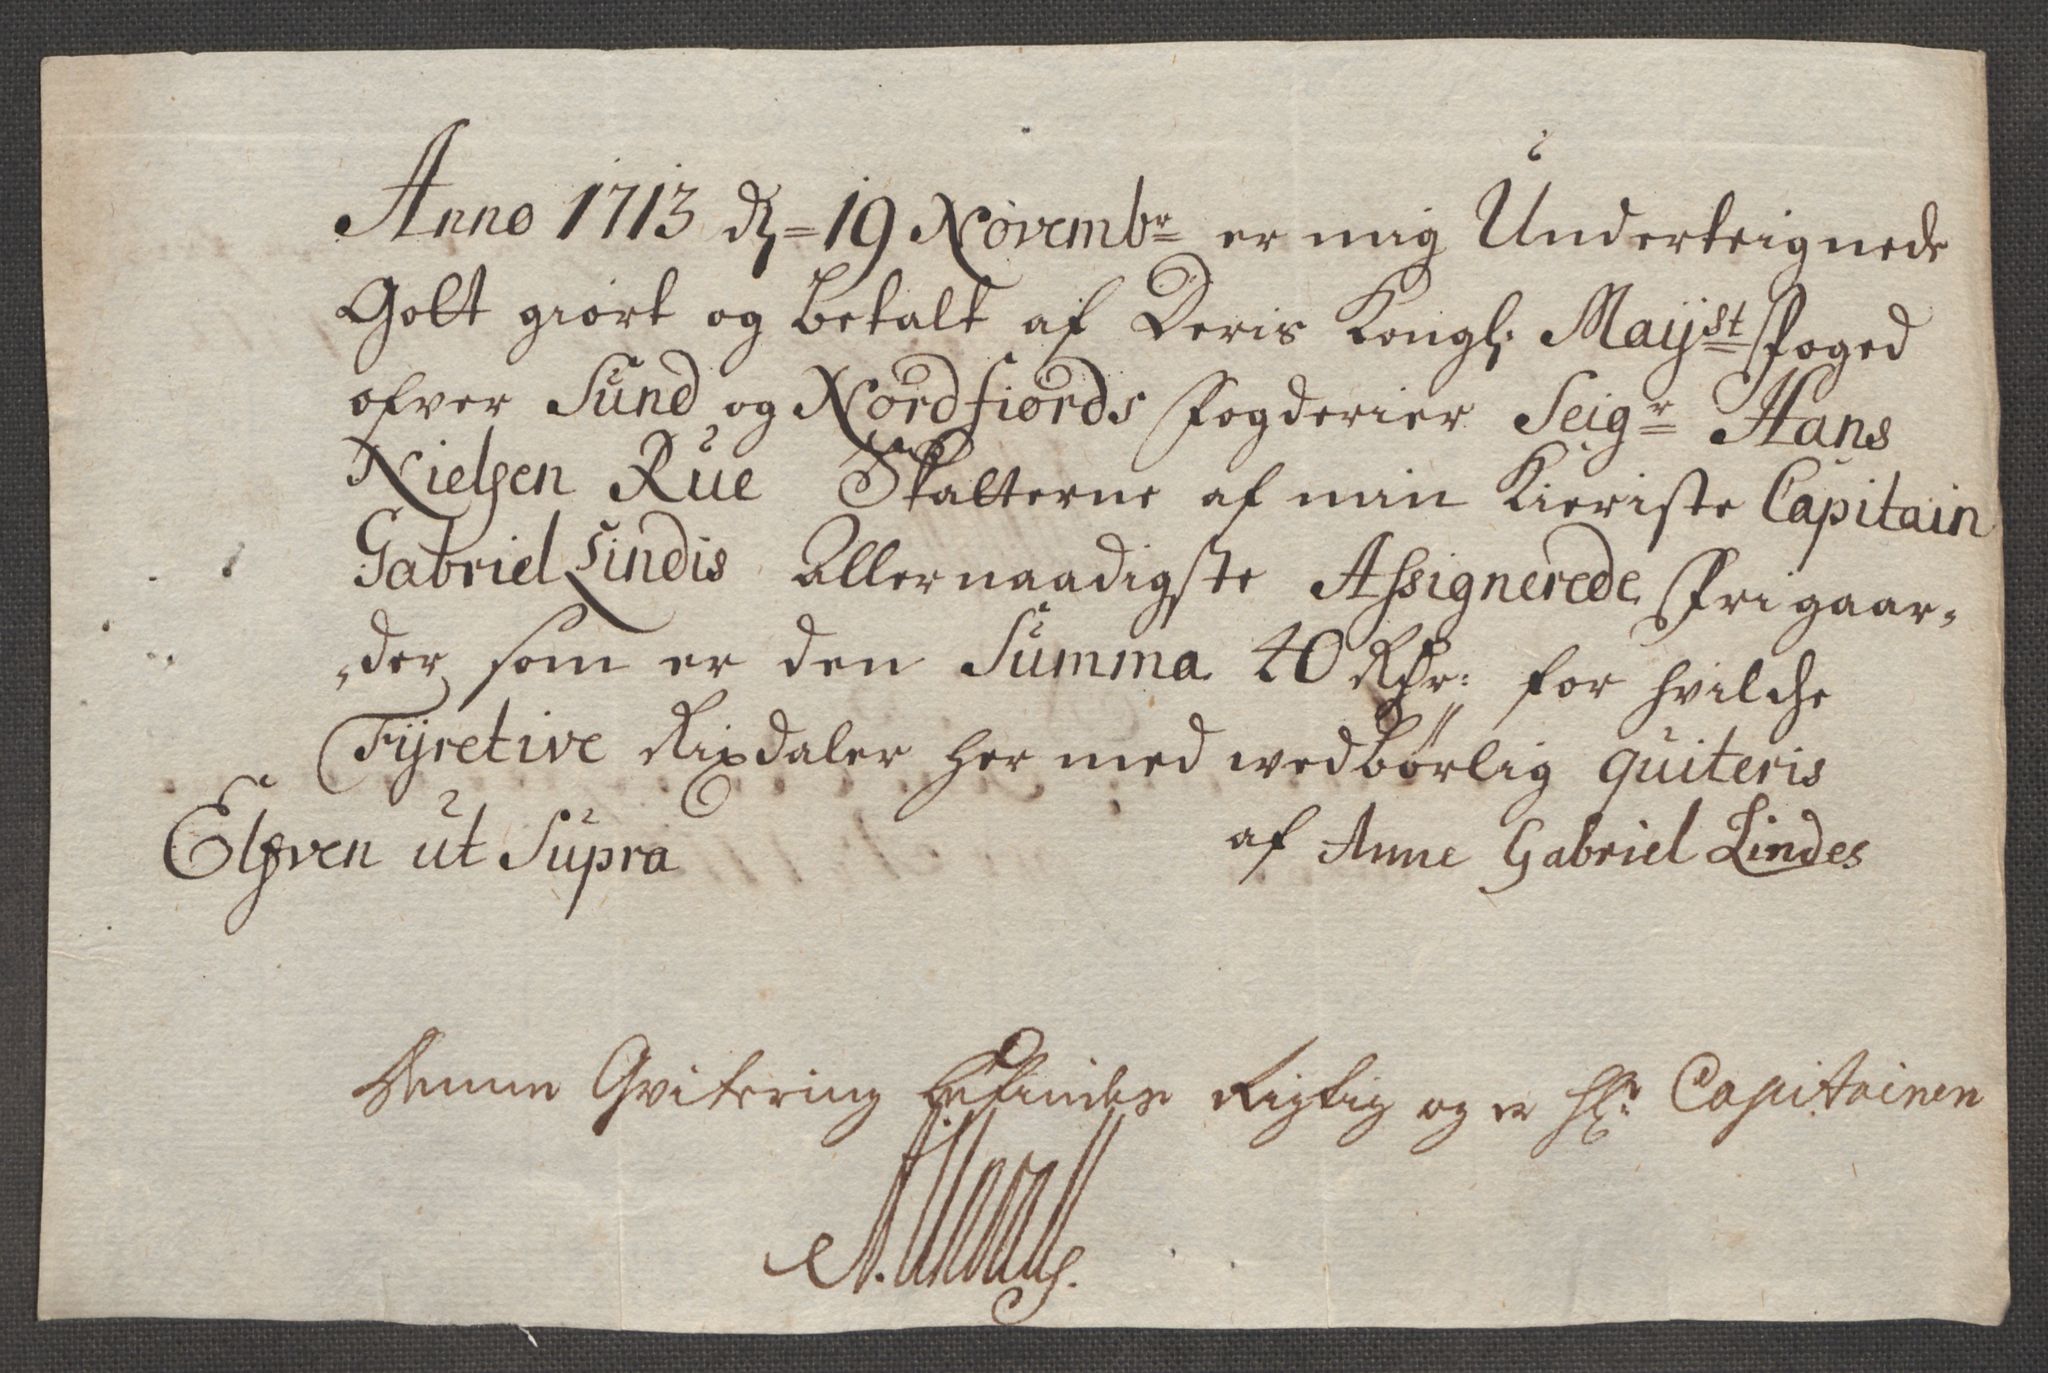 Anno 1713 d. 19 Novembr er mig Underteignede
Golt giort og betalt af Deris Kongl: Mayst Foged
ofver Sund og Nordfiords Fogderier Seigr Hans
Nielsen Rue Skatterne af min Kieriste Capitain
Gabriel Lindis Allernaadigste Assignerede Frigaar-
der som er den Summa 40 Rdr: for hvilche
Fyretive Rixdaler her med wedbörlig quiteris
Elfven ut Supra af Anne Gabriel Lindes
Denne Qvitering befindes Rigtig og er Hr: Capitainen